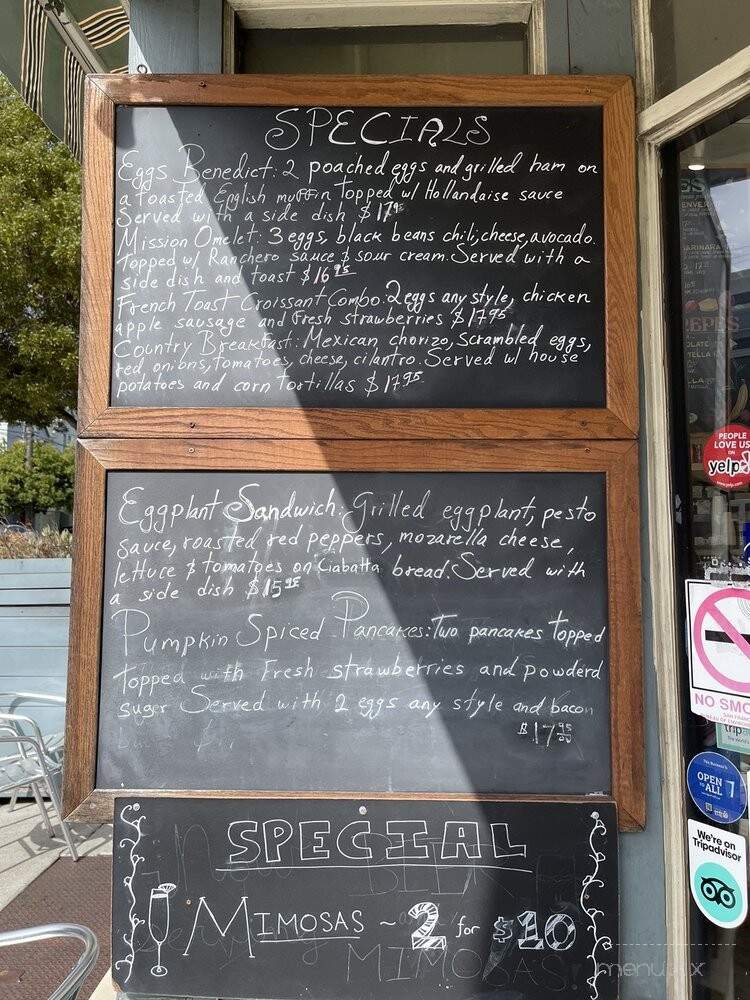 SPECIALS
Eggs Benedict: 2 poached eggs and grilled ham on
a toasted English muffin Topped w/ Hollandaise sauce
Served with a side dish $17.95
Mission Omelet: 3 eggs, black beans chili, cheese, avocado.
Topped w/ Ranchero sauce & sour cream. Served with a
side dish and toast $16.95
French Toast Croissant Combo. 2 eggs any style, chicken
apple sausage and Fresh strawberries $17.95
Country Breakfast: Mexican chorizo, Scrambled eggs,
red onions, tomatoes, cheese, cilantro. Served w/ house
potatoes and corn Tortillas $17.95
Eggplant Sandwich: Grilled eggplant, pesto
sauce, roasted red peppers, mozarella cheese,
lettuce & tomatoes on Ciabatta bread. Served with
a side dish $15.95
Pumpkin Spiced Pancakes: Two pancakes topped
topped with Fresh strawberries and powderd
suger Served with 2 eggs any style and bacon
$17.95
SPECIAL
MIMOSAS ~ 2 for $10
MIMOSAS
PEOPLE
LOVE US
ON
yelp
NO SMO
OPEN
to ALL
We're on
Tripadvisor
menupix